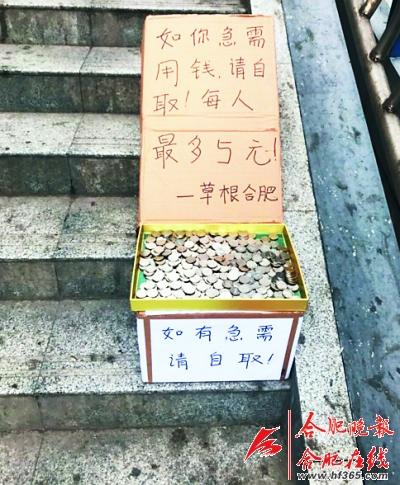 如你急需
用钱,请自
取!每人
最多5元!
—草根合肥
如有急需
请自取!
合肥晚报
合肥在线
www.hf365.com